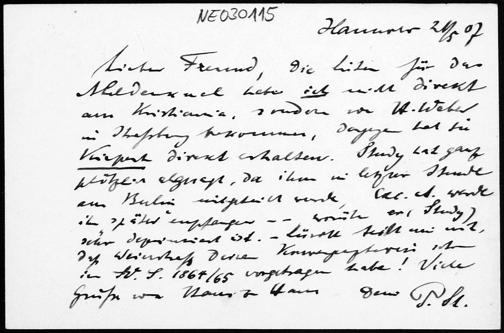 NE030115
Hannover 21/5 07
Lieber Freund, die Listen für das
Abeldenkmal habe ich nicht direkt
aus Kristiania, sondern von H. Weber
in Straßburg bekommen, dagegen hat sie
Kiepert direkt erhalten. Study hat ganz
plötzlich abgesagt, da ihm in letzter Stunde
aus Berlin mitgeteilt wurde, Exc. A. werde
ihn später empfangen — worüber er (Study)
sehr deprimiert ist. — teilt mir mit,
daß Weierstraß Deinen Konvergenzbeweis schon
im W. S. 1864/65 vorgetragen habe! Viele
Grüße von Haus zu Haus Dein P. St.